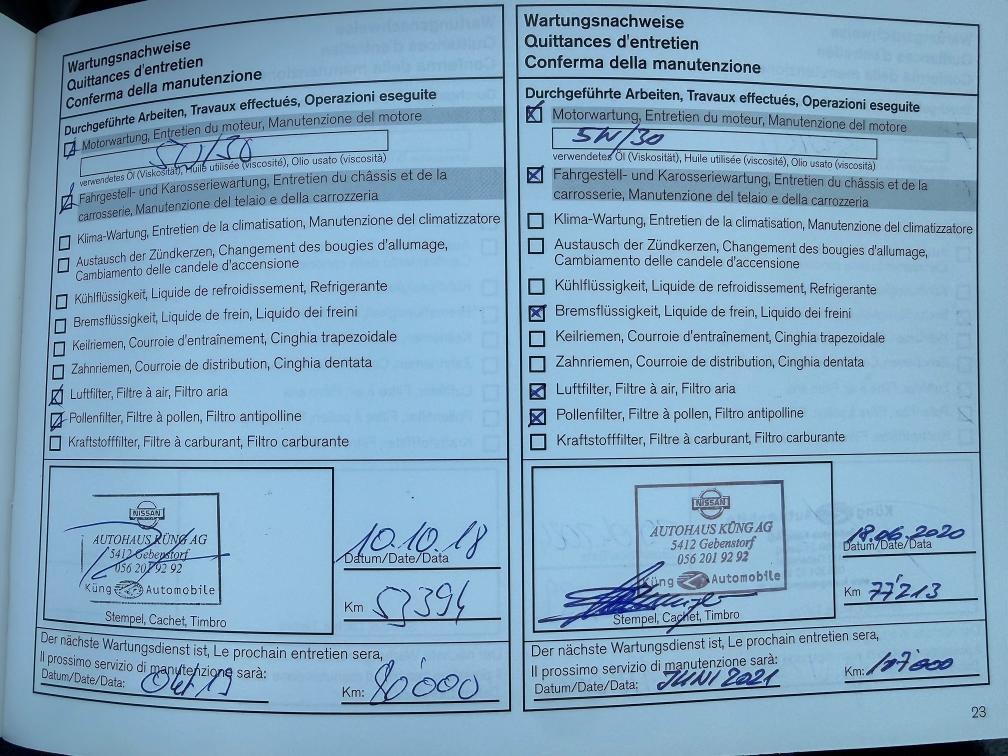 Wartungsnachweise
Quittances d'entretien
Conferma della manutenzione
Durchgeführte Arbeiten, Travaux effectués, Operazioni eseguite
Motorwartung, Entretien du moteur, Manutenzione del motore
5W/30
verwendetes Öl (Viskosität), Huile utilisée (viscosité), Olio usato (viscosità)
Fahrgestell- und Karosseriewartung, Entretien du châssis et de la
carrosserie, Manutenzione del telaio e della carrozzeria
Klima-Wartung, Entretien de la climatisation, Manutenzione del climatizzatore
Austausch der Zündkerzen, Changement des bougies d'allumage,
Cambiamento delle candele d'accensione
Kühlflüssigkeit, Liquide de refroidissement, Refrigerante
Bremsflüssigkeit, Liquide de frein, Liquido dei freini
Keilriemen, Courroie d'entraînement, Cinghia trapezoidale
Zahnriemen, Courroie de distribution, Cinghia dentata
Luftfilter, Filtre à air, Filtro aria
Pollenfilter, Filtre à pollen, Filtro antipolline
Kraftstofffilter, Filtre à carburant, Filtro carburante
NISSAN
AUTOHAUS KÜNG AG
5412 Gebenstorf
056 201 92 92
Küng Automobile
Stempel, Cachet, Timbro
10.10.18
Datum/Date/Data
Km 53394
Der nächste Wartungsdienst ist, Le prochain entretien sera,
Il prossimo servizio di manutenzione sarà:
Datum/Date/Data: Okt 19
Km: 80'000
Wartungsnachweise
Quittances d'entretien
Conferma della manutenzione
Durchgeführte Arbeiten, Travaux effectués, Operazioni eseguite
Motorwartung, Entretien du moteur, Manutenzione del motore
5W/30
verwendetes Öl (Viskosität), Huile utilisée (viscosité), Olio usato (viscosità)
Fahrgestell- und Karosseriewartung, Entretien du châssis et de la
carrosserie, Manutenzione del telaio e della carrozzeria
Klima-Wartung, Entretien de la climatisation, Manutenzione del climatizzatore
Austausch der Zündkerzen, Changement des bougies d'allumage,
Cambiamento delle candele d'accensione
Kühlflüssigkeit, Liquide de refroidissement, Refrigerante
Bremsflüssigkeit, Liquide de frein, Liquido dei freini
Keilriemen, Courroie d'entraînement, Cinghia trapezoidale
Zahnriemen, Courroie de distribution, Cinghia dentata
Luftfilter, Filtre à air, Filtro aria
Pollenfilter, Filtre à pollen, Filtro antipolline
Kraftstofffilter, Filtre à carburant, Filtro carburante
NISSAN
AUTOHAUS KÜNG AG
5412 Gebenstorf
056 201 92 92
Küng Automobile
Stempel, Cachet, Timbro
18.06.2020
Datum/Date/Data
Km 77'213
Der nächste Wartungsdienst ist, Le prochain entretien sera,
Il prossimo servizio di manutenzione sarà:
Datum/Date/Data: JUNI 2021
Km: 107'000
23